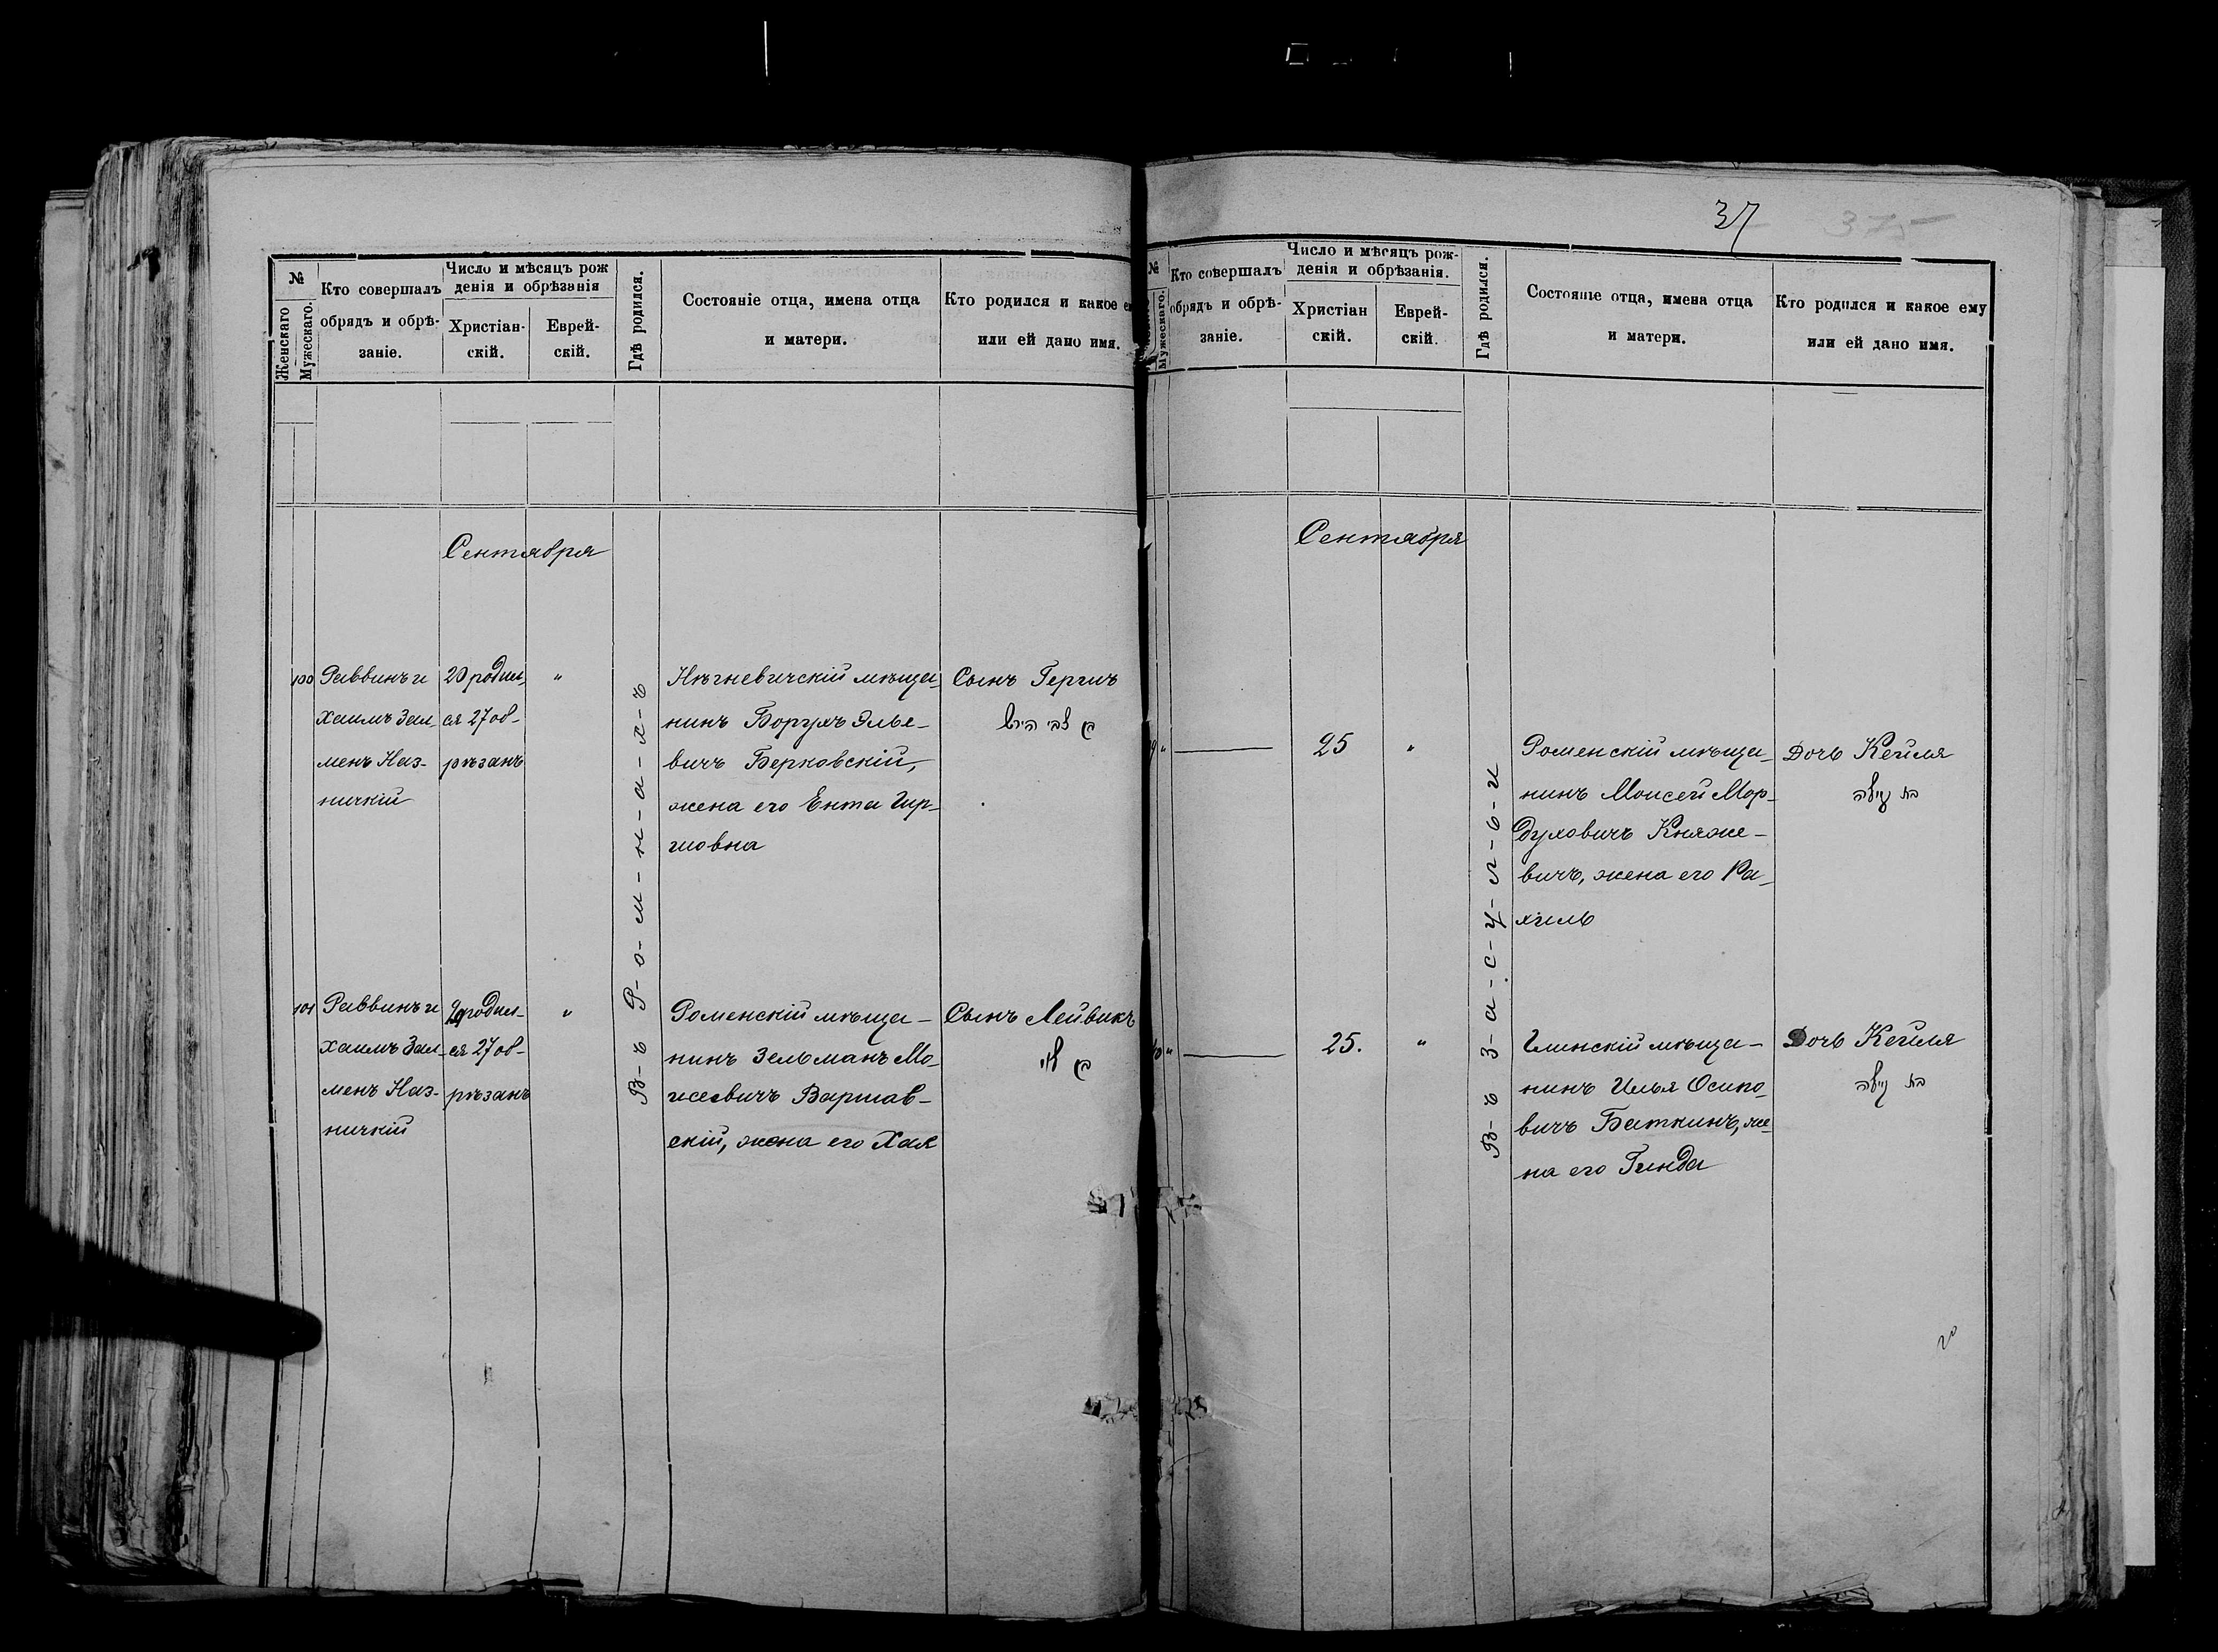 37
№
Женскаго
Мужескаго.
Кто совершалъ
обрядъ и обрѣ-
заніе.
Число и мѣсяцъ рож
денія и обрѣзанія
Христіан-
скій.
Еврей-
скій.
Гдѣ родился.
Состояніе отца, имена отца
и матери.
Кто родился и какое
или ей дано имя.
Сентября
100
Раввинъ и
Хаимъ Зал-
менъ Наз-
ничкій
20 родил-
ся 27 об-
рѣзанъ
"
В-ъ Р-о-м-н-а-х-ъ
мѣща-
нинъ Борухъ Элье-
вичъ Берковскій,
жена его Ента Гир-
шовна
Сынъ Гершъ
בן צבי הירש
101
Раввинъ и
Хаимъ Зал-
менъ Наз-
ничкій
родил-
ся 27 об-
рѣзанъ
"
Роменскій мѣща-
нинъ Зельманъ Мо-
исеевичъ Варшав-
скій, жена его Хая
Сынъ Лейвикъ
בן לוי
№
Мужескаго.
Кто совершалъ
обрядъ и обрѣ-
заніе.
Число и мѣсяцъ рож-
денія и обрѣзанія.
Христіан
скій.
Еврей-
скій.
Гдѣ родился.
Состояніе отца, имена отца
и матери.
Кто родился и какое ему
или ей дано имя.
Сентября
9 "
25
"
В-ъ З-а-с-у-л-ь-и
Роменскій мѣща-
нинъ Моисей Мор-
духовичъ Княже-
вичъ, жена его Ра-
хиль
Дочь Кейля
בת קיילה
"
25.
"
Глинскій мѣща-
нинъ Илья Осипо-
вичъ Баткинъ, же-
на его Гинда
Дочь Кейля
בת קיילה